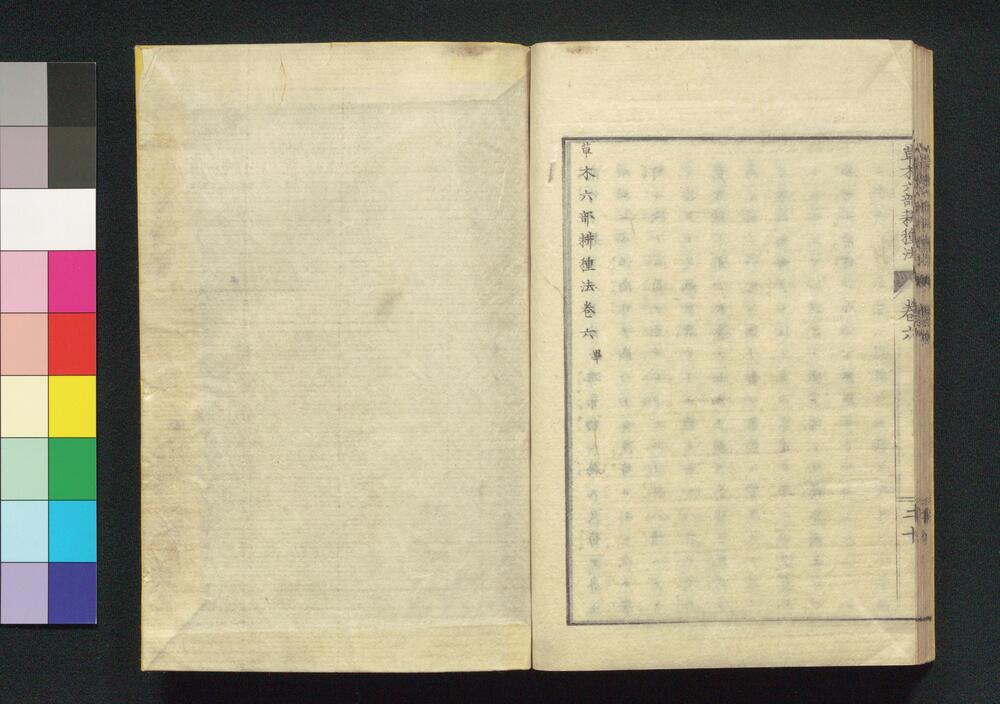 草木六部耕種法
巻六
二十
草木六部耕種法巻六畢